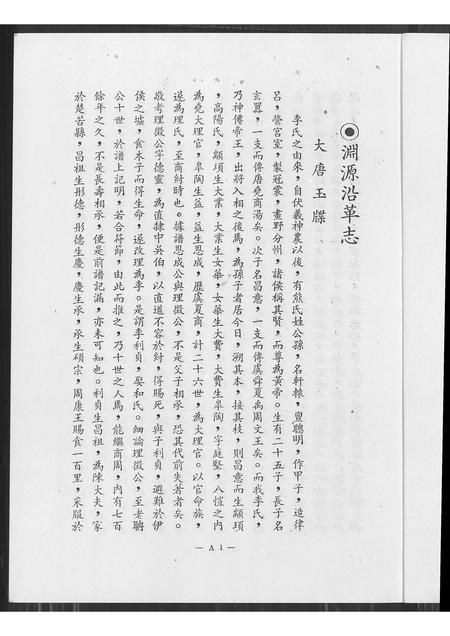 ◉淵源沿革志
大唐玉牒
李氏之由來，自伏羲神農以後，有熊氏姓公孫，名軒轅，亶聰明，作甲子，造律
呂，營宮室，製冠裳，畫野分州，諸侯稱其賢，而尊為黃帝。生有二十五子，長子名
玄囂，一支而傳唐堯商湯矣。次子名昌意，一支而傳虞舜夏禹周文王矣。而我李氏，
乃神傳帝王，出將入相之後焉，為孫子者居今日，溯其本，接其枝，則昌意而生顓頊
，高陽氏，顓頊生大業，大業生女華，女華生大費，大費生皐陶，字庭堅，八愷之內
為堯大理官。皐陶生益，益生恩成，歷虞夏商，計二十六世，為大理官。以官命族，
遂為理氏，至商紂時也。據譜恩成公與理徵公，不是父子相承，恐其代前失著者矣。
敬考理徵公字德靈，為直隸中吳伯，以直道不容於紂，得賜死，與子利貞，避難於伊
侯之墟，食木子而得生命，遂改理為李。是謂李利貞，娶和氏。細論理徵公，至老聃
公十世，於譜上記明，若合符節，由此而推之，乃十世之人焉，能繼商周，內有七百
餘年之久，不是長壽相承，便是前譜記漏，亦未可知也。利貞生昌祖，為陳大夫，家
於楚苦縣，昌祖生彤德，彤德生慶，慶生承，承生碩宗，周康王賜食一百里，采服於
— A 1 —